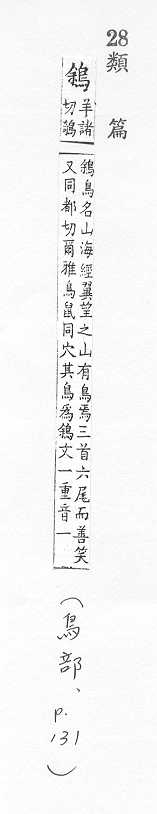 28類篇
鵌
羊諸
切鵌
鵌鳥名山海經翼望之山有鳥焉三首六尾而善笑
又同都切爾雅鳥鼠同穴其鳥爲鵌文一重音一
（鳥部、p.131）